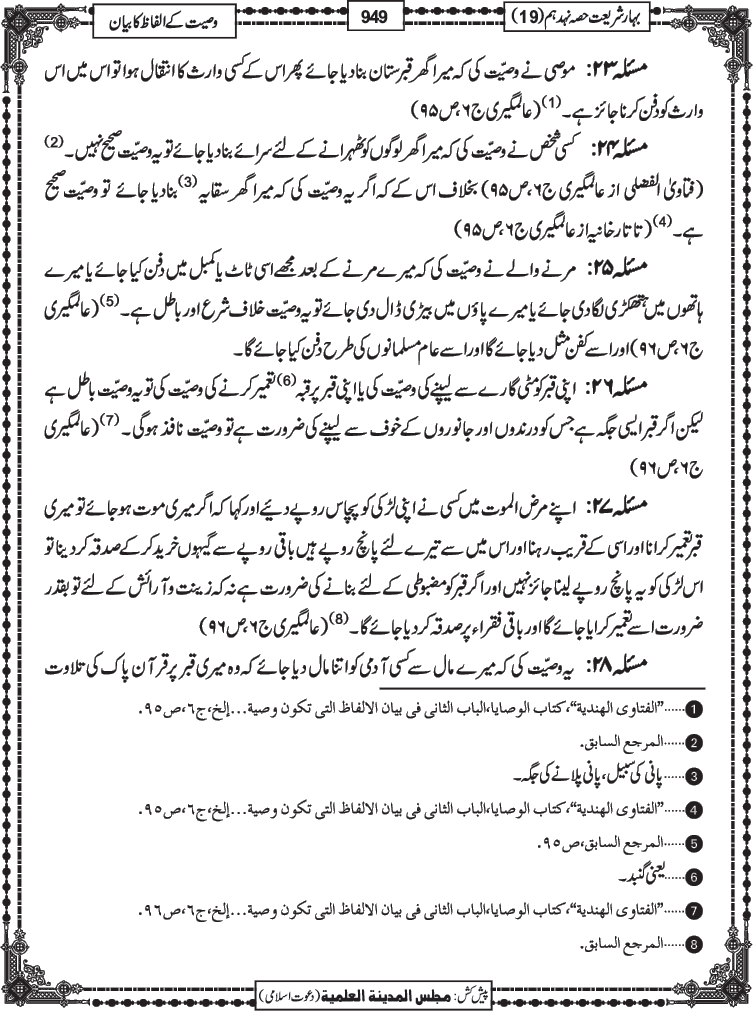 بہارِ شریعت حصہ نہدہم (19)
949
وصیت کے الفاظ کا بیان
مسئلہ ۲۳: موصی نے وصیّت کی کہ میرا گھر قبرستان بنا دیا جائے پھر اس کے کسی وارث کا انتقال ہوا تو اس میں اس
وارث کو دفن کرنا جائز ہے۔(1) (عالمگیری ج۶، ص۹۵)
مسئلہ ۲۴: کسی شخص نے وصیّت کی کہ میرا گھر لوگوں کو ٹھہرانے کے لئے سرائے بنا دیا جائے تو یہ وصیّت صحیح نہیں۔(2)
(فتاویٰ الفضلی از عالمگیری ج۶، ص۹۵) بخلاف اس کے کہ اگر یہ وصیّت کی کہ میرا گھر سقایہ(3) بنا دیا جائے تو وصیّت صحیح
ہے۔(4) (تاتارخانیہ از عالمگیری ج۶، ص۹۵)
مسئلہ ۲۵: مرنے والے نے وصیّت کی کہ میرے مرنے کے بعد مجھے اسی ٹاٹ یا کمبل میں دفن کیا جائے یا میرے
ہاتھوں میں ہتھکڑی لگا دی جائے یا میرے پاؤں میں بیڑی ڈال دی جائے تو یہ وصیّت خلاف شرع اور باطل ہے۔(5) (عالمگیری
ج۶، ص۹۶) اور اسے کفن مثل دیا جائے گا اور اسے عام مسلمانوں کی طرح دفن کیا جائے گا۔
مسئلہ ۲۶: اپنی قبر کو مٹی گارے سے لیپنے کی وصیّت کی یا اپنی قبر پر قبہ(6) تعمیر کرنے کی وصیّت کی تو یہ وصیت باطل ہے
لیکن اگر قبر ایسی جگہ ہے جس کو درندوں اور جانوروں کے خوف سے لیپنے کی ضرورت ہے تو وصیّت نافذ ہوگی۔(7) (عالمگیری
ج۶، ص۹۶)
مسئلہ ۲۷: اپنے مرض الموت میں کسی نے اپنی لڑکی کو پچاس روپے دیئے اور کہا کہ اگر میری موت ہو جائے تو میری
قبر تعمیر کرانا اور اسی کے قریب رہنا اور اس میں سے تیرے لئے پانچ روپے ہیں باقی روپے سے گیہوں خرید کر کے صدقہ کر دینا تو
اس لڑکی کو یہ پانچ روپے لینا جائز نہیں اور اگر قبر کو مضبوطی کے لئے بنانے کی ضرورت ہے نہ کہ زینت و آرائش کے لئے تو بقدر
ضرورت اسے تعمیر کرایا جائے گا اور باقی فقراء پر صدقہ کر دیا جائے گا۔(8) (عالمگیری ج۶، ص۹۶)
مسئلہ ۲۸: یہ وصیّت کی کہ میرے مال سے کسی آدمی کو اتنا مال دیا جائے کہ وہ میری قبر پر قرآن پاک کی تلاوت
1......"الفتاوی الھندیة"، کتاب الوصایا،الباب الثانی فی بیان الالفاظ التی تکون وصیة...إلخ،ج٦،ص٩٥.
2......المرجع السابق.
3...... پانی کی سبیل، پانی پلانے کی جگہ۔
4......"الفتاوی الھندیة"، کتاب الوصایا،الباب الثانی فی بیان الالفاظ التی تکون وصیة...إلخ،ج٦،ص٩٥.
5......المرجع السابق،ص٩٥.
6......یعنی گنبد۔
7......"الفتاوی الھندیة"، کتاب الوصایا،الباب الثانی فی بیان الالفاظ التی تکون وصیة...إلخ،ج٦،ص٩٦.
8......المرجع السابق.
پیش کش: مجلس المدينة العلمية (دعوت اسلامی)